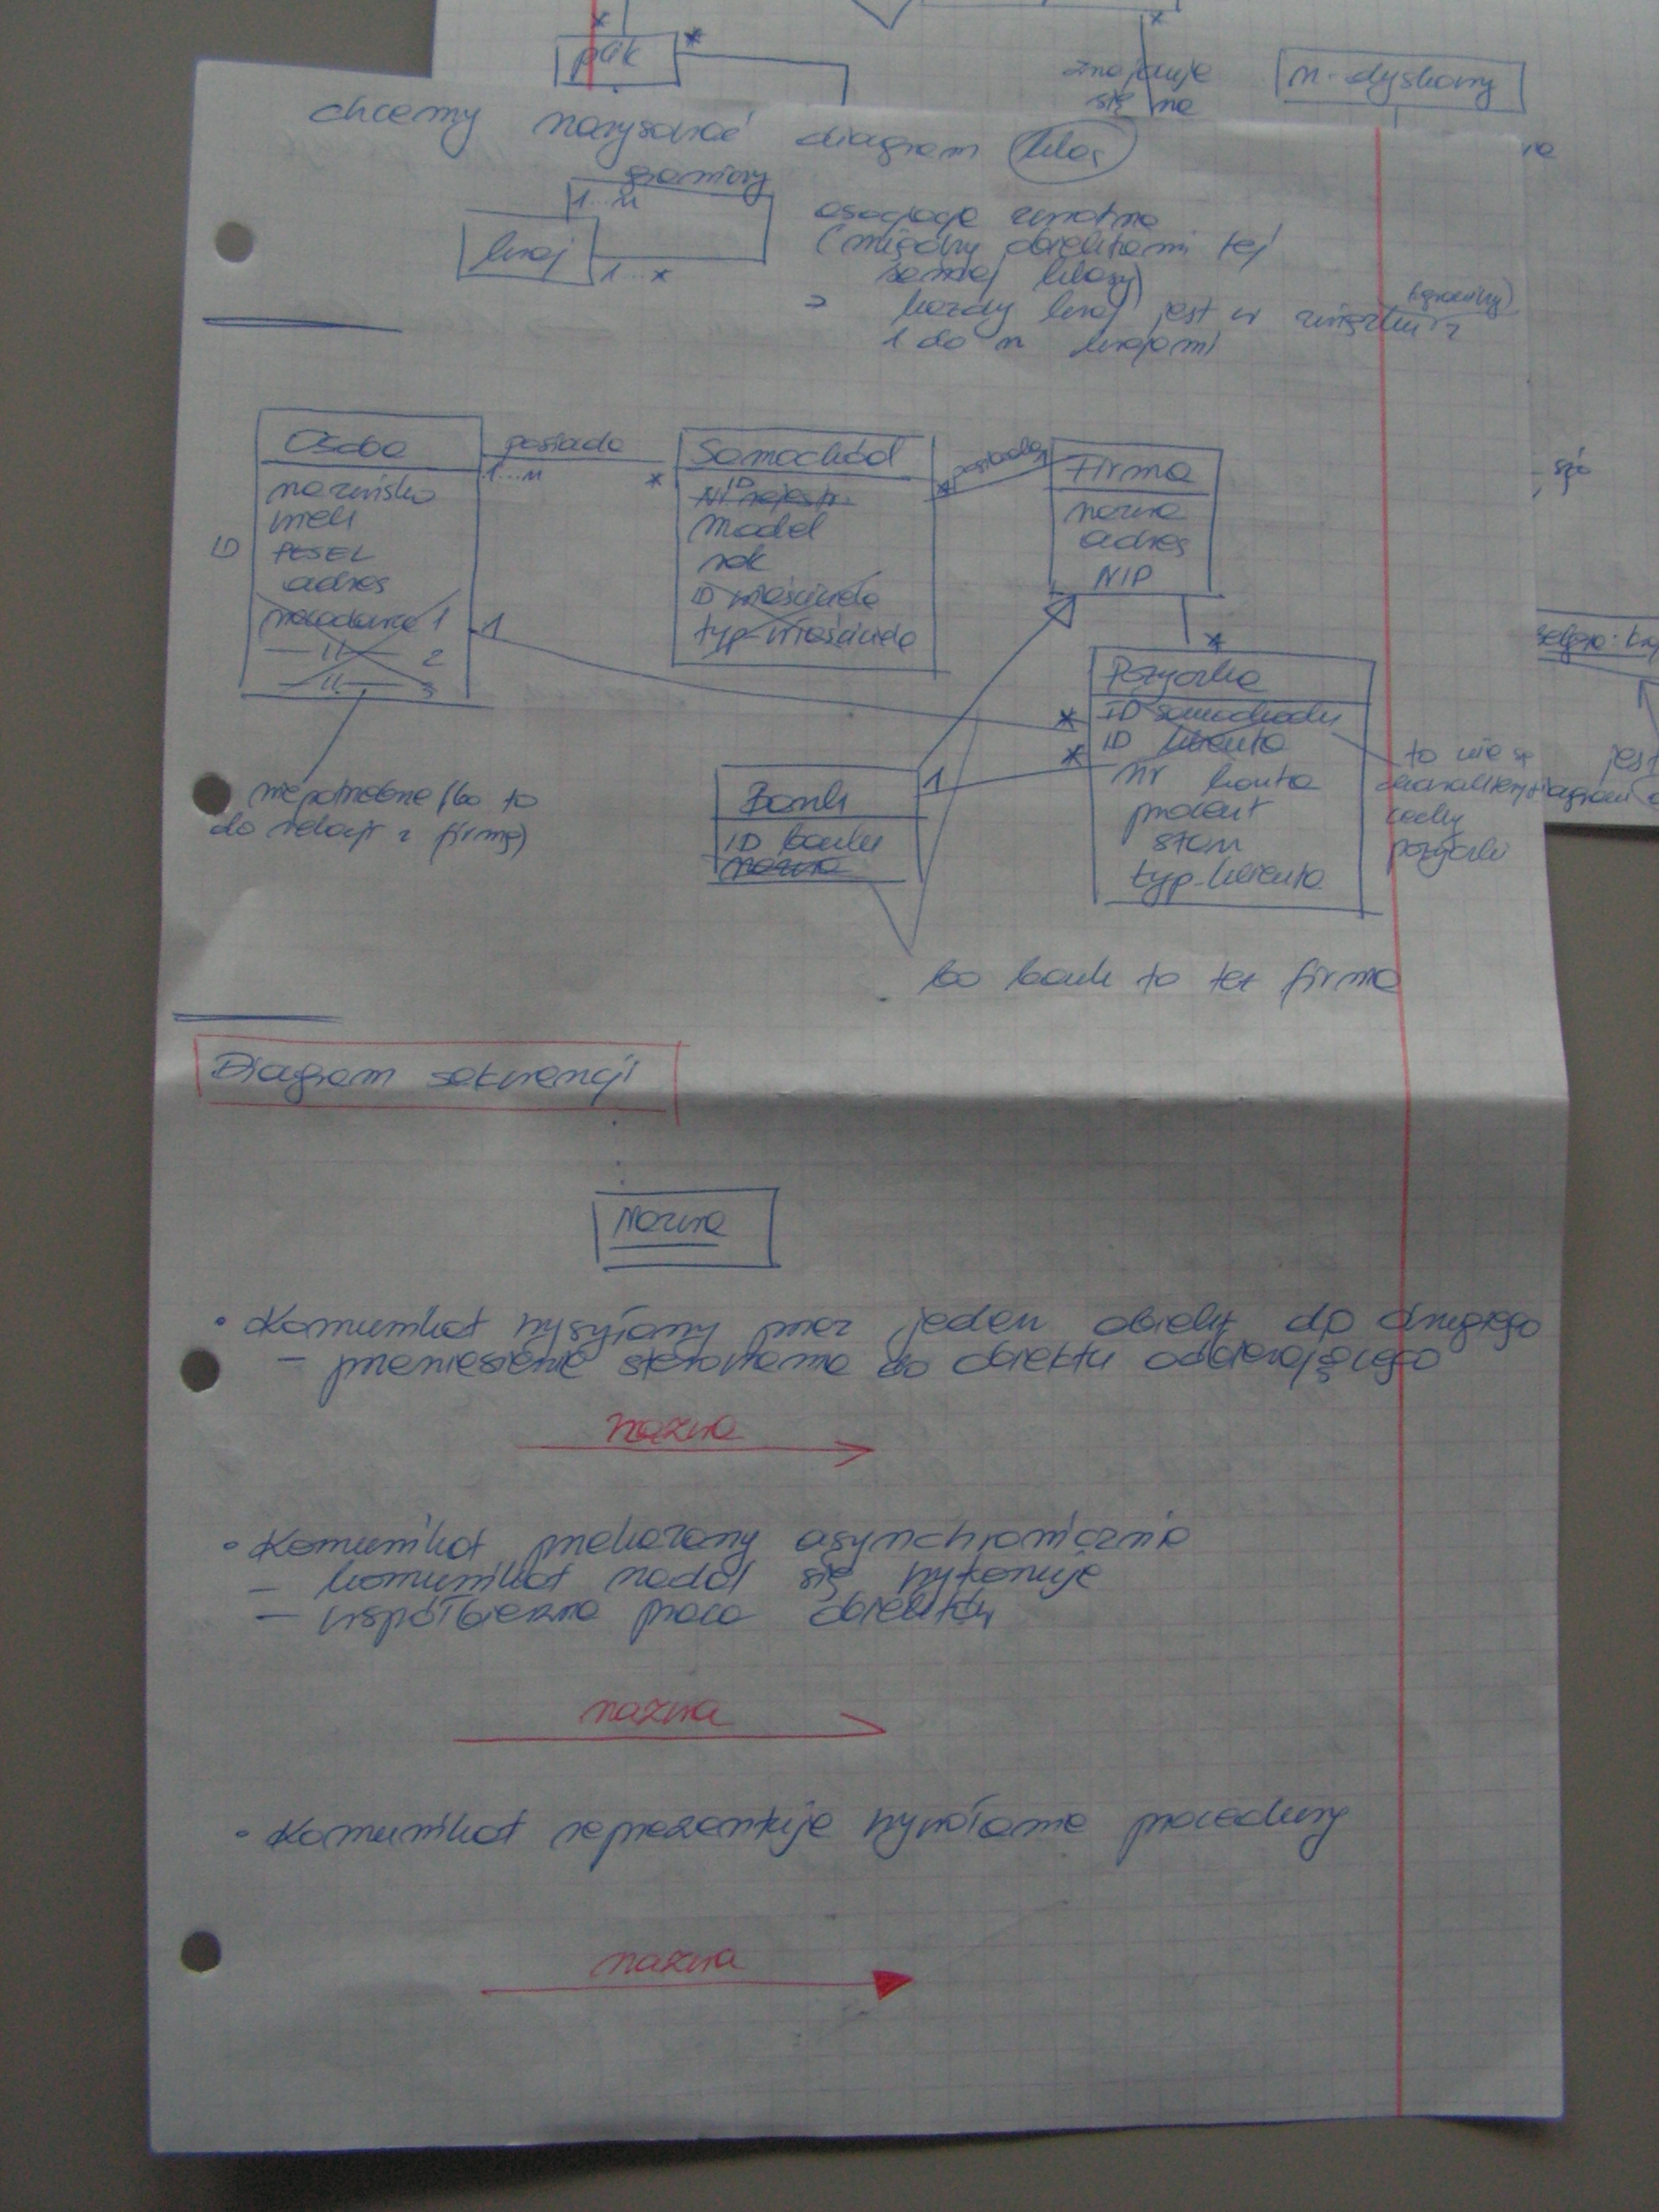 plik
*
*
*
znajduje
się na
m. dyskowy
chcemy narysować diagram klas
graniczy
1...n
kraj
1...*
asocjacja zwrotna
(między obiektami tej
samej klasy)
każdy kraj jest w związku z
(graniczy)
1 do n krajami
Osoba
nazwisko
imię
ID
PESEL
adres
1
— 11 — 2
— 11 — 3
posiada
1...n
*
Samochód
ID
Nr rejestr.
model
rok
ID właściciela
typ-właściciela
posiada
*
Firma
nazwa
adres
NIP
*
1
*
Pożyczka
ID samochodu
ID klienta
nr konta
procent
stan
typ-klienta
*
1
Bank
ID banku
nazwa
niepotrzebne (bo to
do relacji z firmą)
to nie są
cechy
pożyczki
jest
bo bank to też firma
Diagram sekwencji
Nazwa
• Komunikat wysyłany przez jeden obiekt do drugiego
– przeniesienie sterowania do obiektu odbierającego
nazwa
• Komunikat przekazany asynchronicznie
– komunikat nadal się wykonuje
– współbieżna praca obiektów
nazwa
• Komunikat reprezentuje wywołanie procedury
nazwa